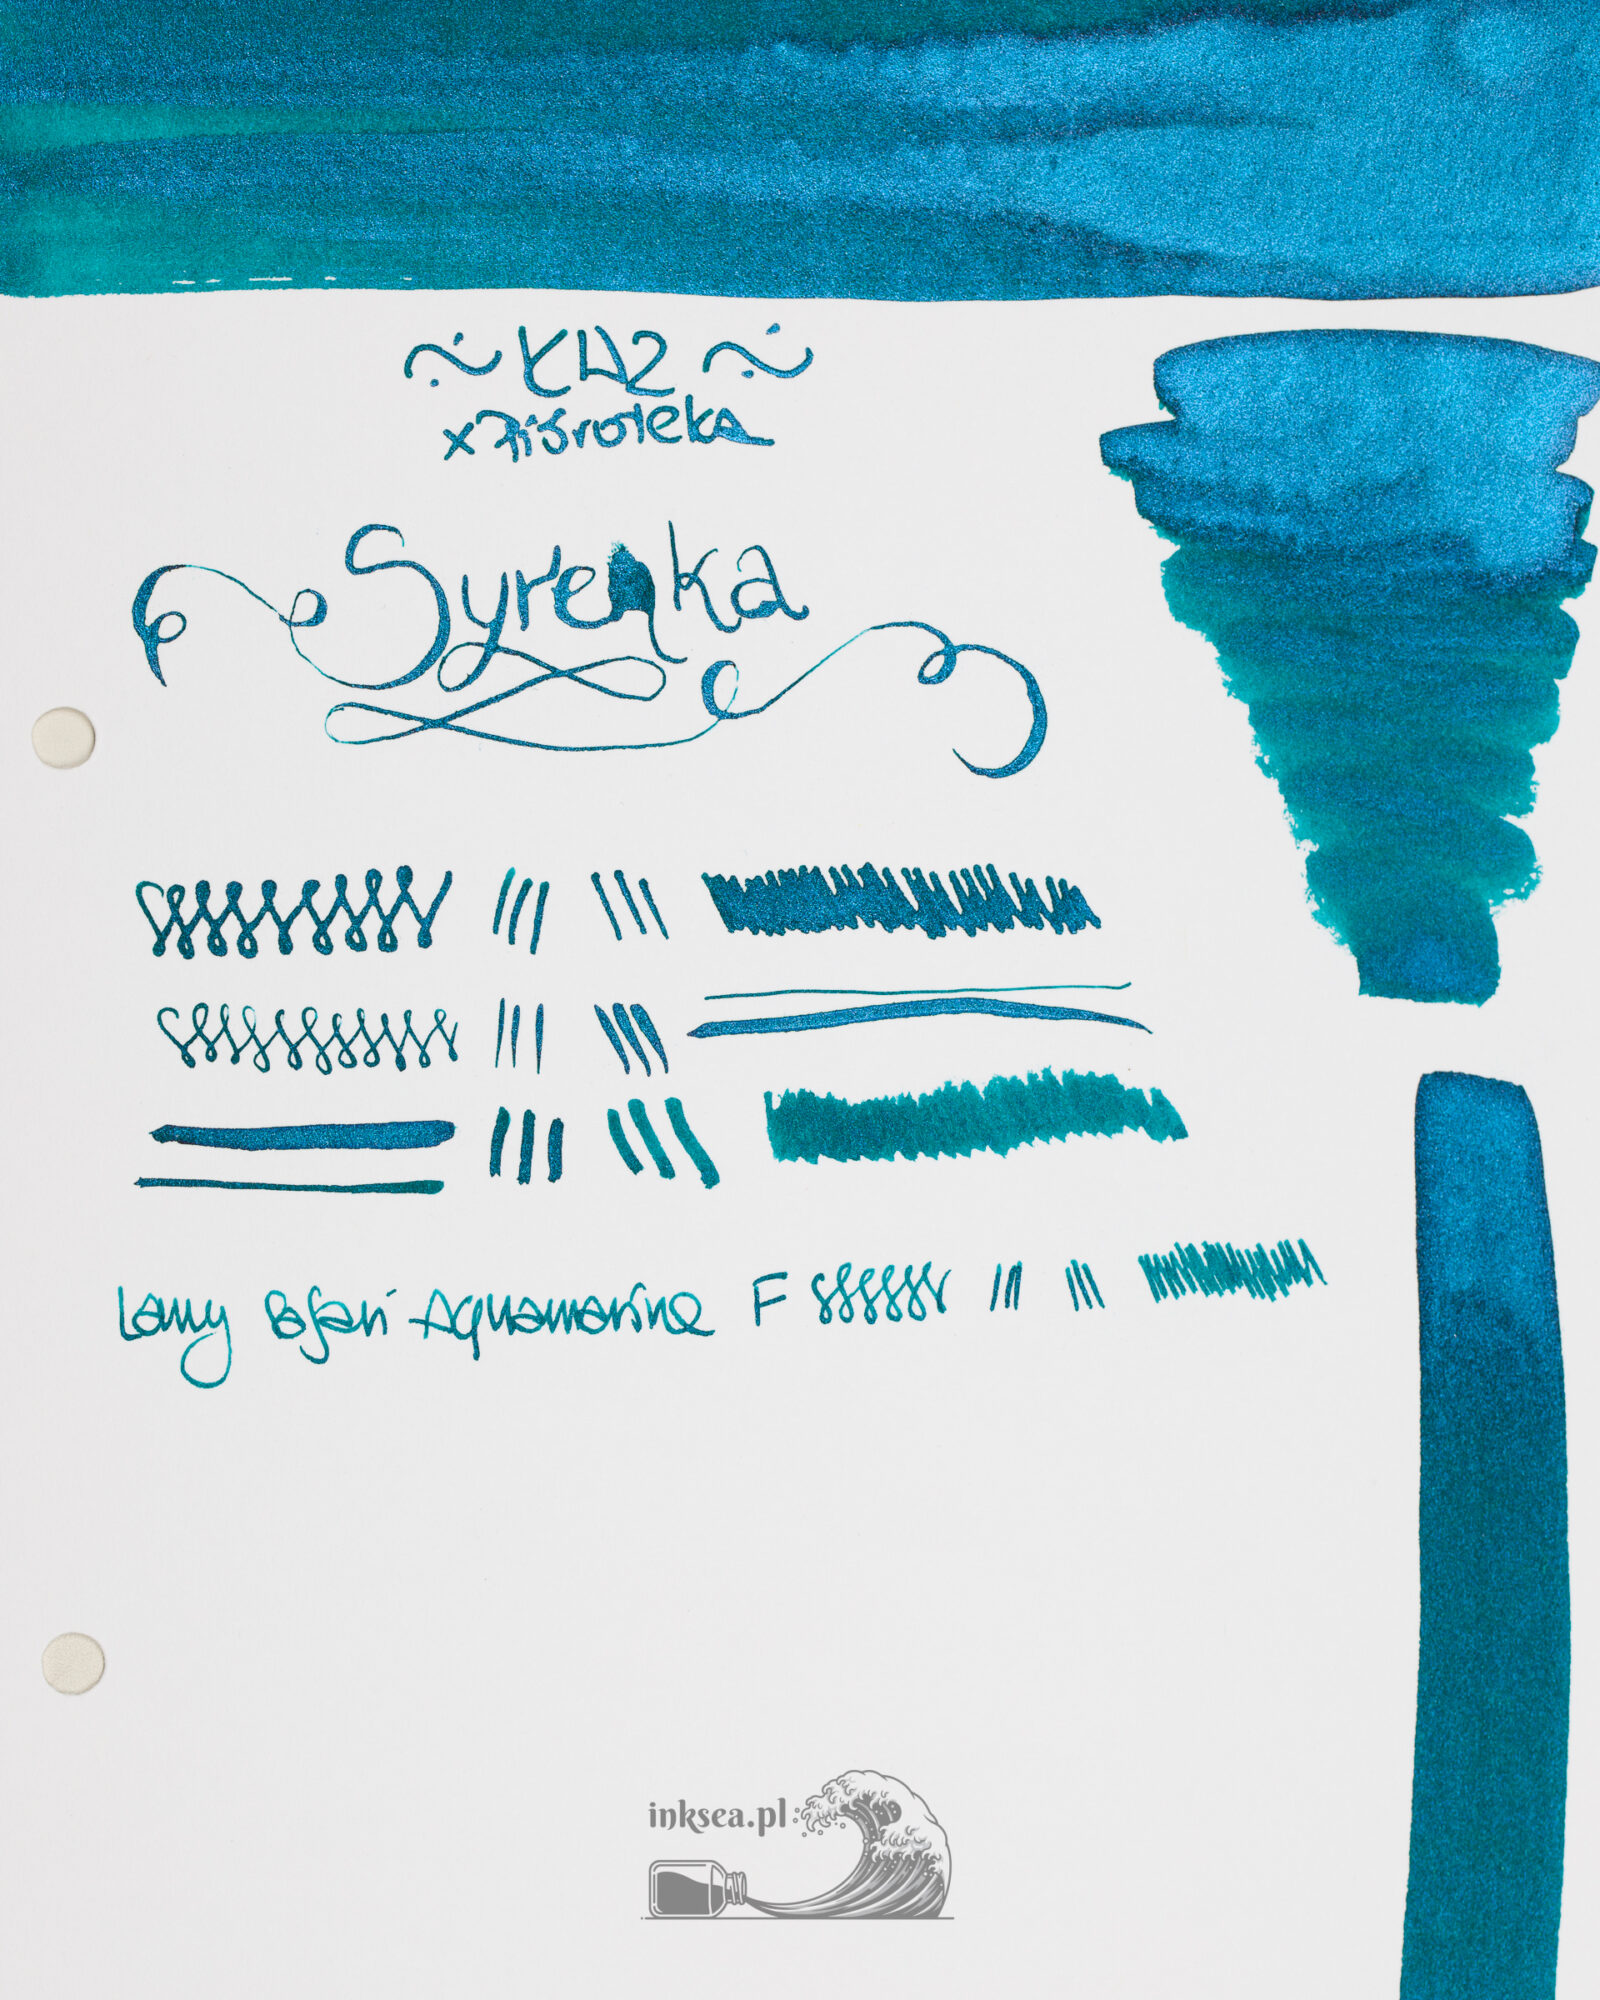 ~ KWZ ~
x Pióroteka
Syrenka
Lamy Safari Aquamarine F
inksea.pl